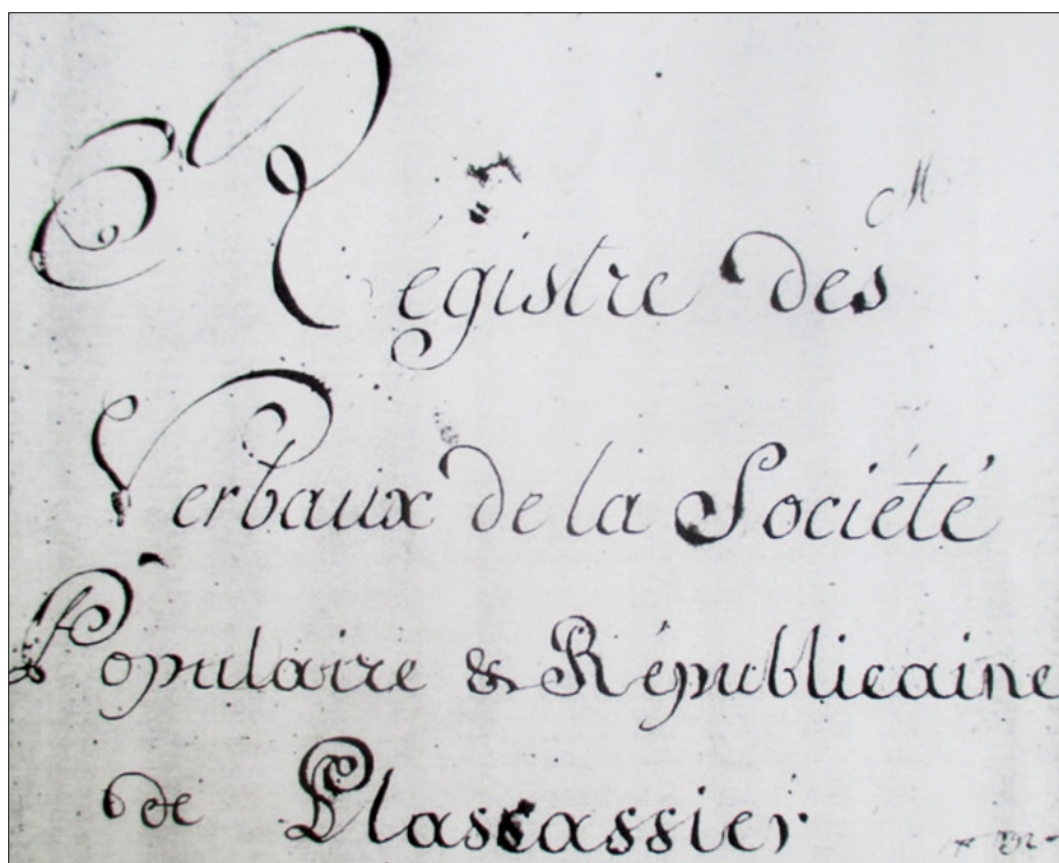 Régistre des
Verbaux de la Société
Populaire & Républicaine
de Plascassier